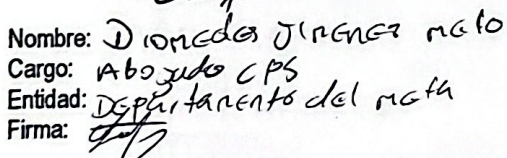 Nombre: Diomedes Jimenez Melo
Cargo: Abogado CPS
Entidad: Departamento del Meta
Firma: